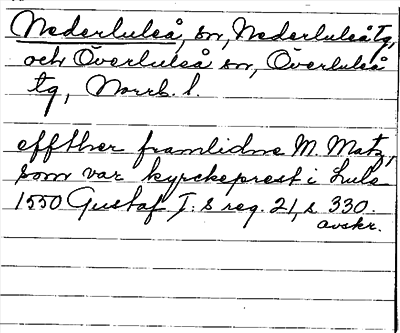 Nederluleå, sn, Nederluleå tg,
och Överluleå sn, Överluleå
tg, Norrb. l.
effther framlidne M. Matz,
som var kyrckeprest i Lule
1550 Gustaf I:s reg. 21, s 330.
avskr.